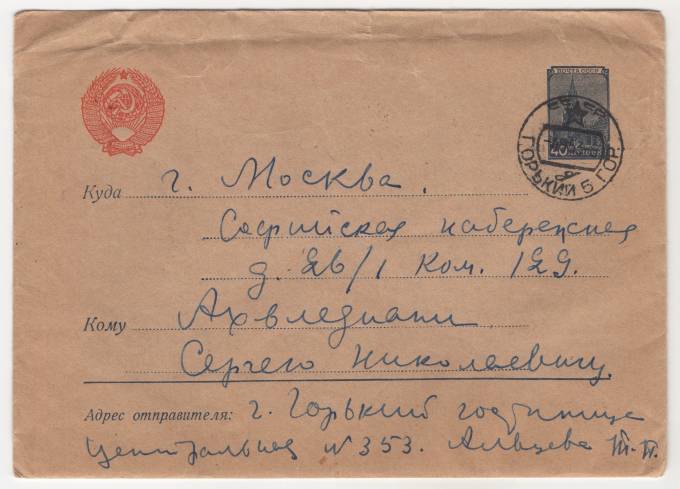 ПОЧТА СССР
40
ГОРЬКИЙ 5 ГОР.
Куда г. Москва.
Софийская набережная
д. 26/1 ком. 129.
Кому Ахвледиани
Сергею Николаевичу.
Адрес отправителя: г. Горький гостиница
Центральная N 353. Альцева